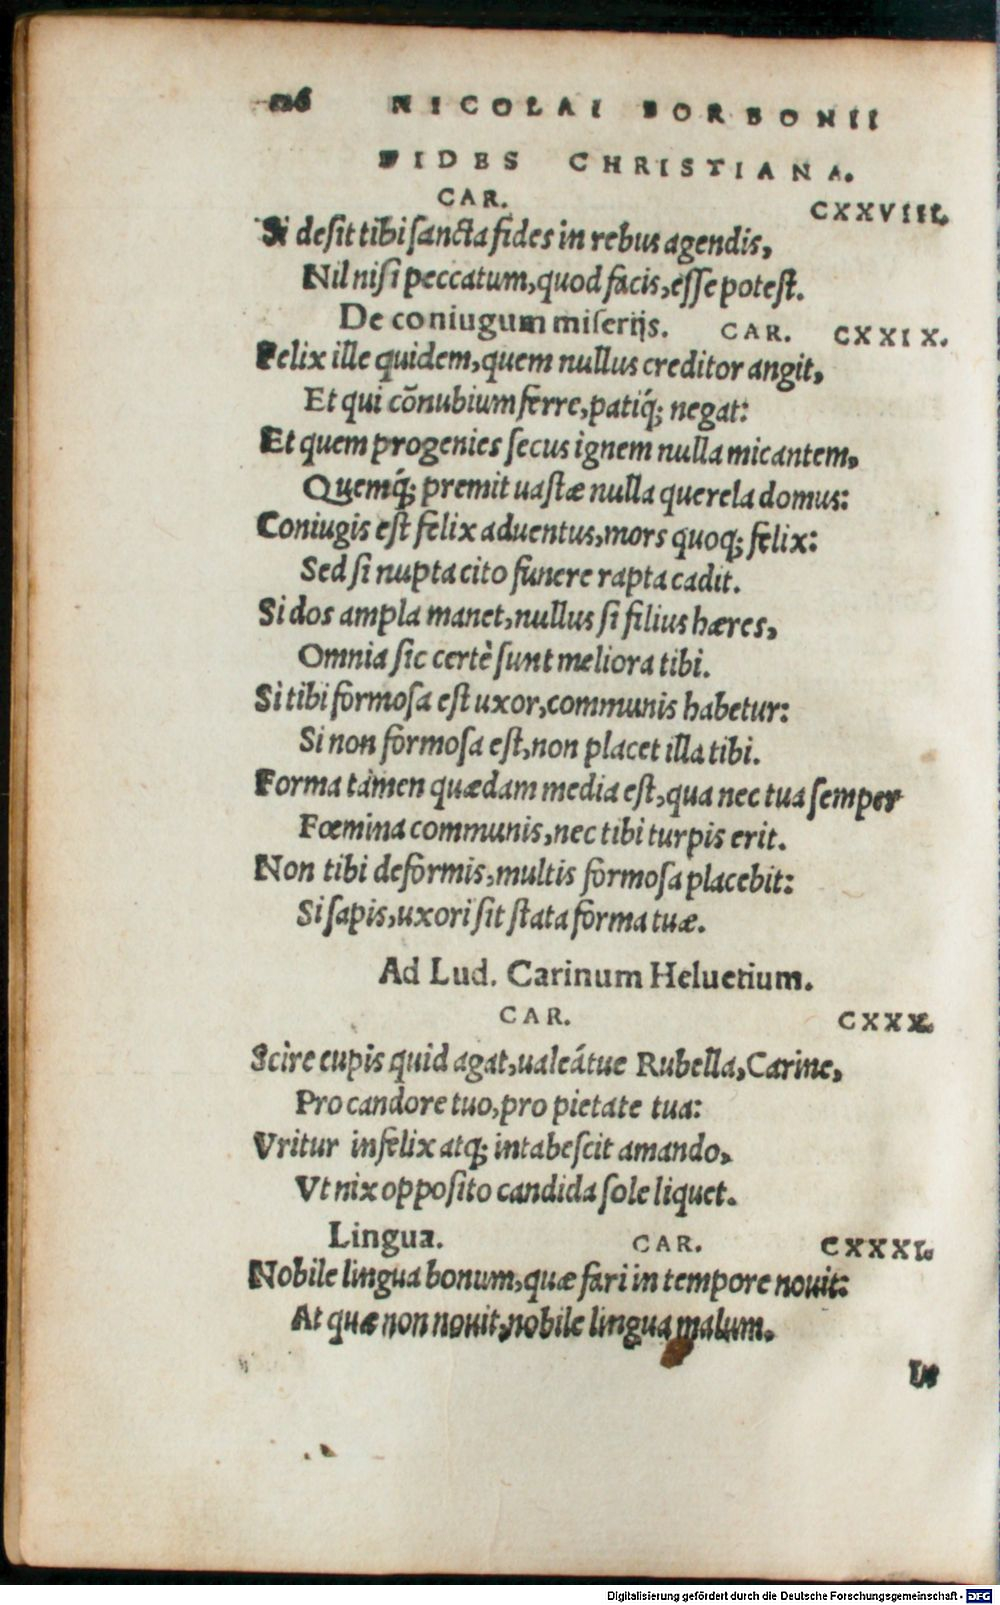 126 NICOLAI BORBONII
FIDES CHRISTIANA.
CAR. CXXVIII.
Si desit tibi sancta fides in rebus agendis,
Nil nisi peccatum, quod facis, esse potest.
De coniugum miserijs. CAR. CXXIX.
Felix ille quidem, quem nullus creditor angit,
Et qui cõnubium ferre, patiq́; negat:
Et quem progenies secus ignem nulla micantem,
Quemq́; premit uastæ nulla querela domus:
Coniugis est felix aduentus, mors quoq; felix:
Sed si nupta cito funere rapta cadit.
Si dos ampla manet, nullus si filius hæres,
Omnia sic certè sunt meliora tibi.
Si tibi formosa est uxor, communis habetur:
Si non formosa est, non placet illa tibi.
Forma tamen quædam media est, qua nec tua semper
Fœmina communis, nec tibi turpis erit.
Non tibi deformis, multis formosa placebit:
Si sapis, uxori sit stata forma tuæ.
Ad Lud. Carinum Heluetium.
CAR. CXXX.
Scire cupis quid agat, ualeátue Rubella, Carine,
Pro candore tuo, pro pietate tua:
Vritur infelix atq; intabescit amando,
Vt nix opposito candida sole liquet.
Lingua. CAR. CXXXI.
Nobile lingua bonum, quæ fari in tempore nouit:
At quæ non nouit, nobile lingua malum.
Digitalisierung gefördert durch die Deutsche Forschungsgemeinschaft - DFG